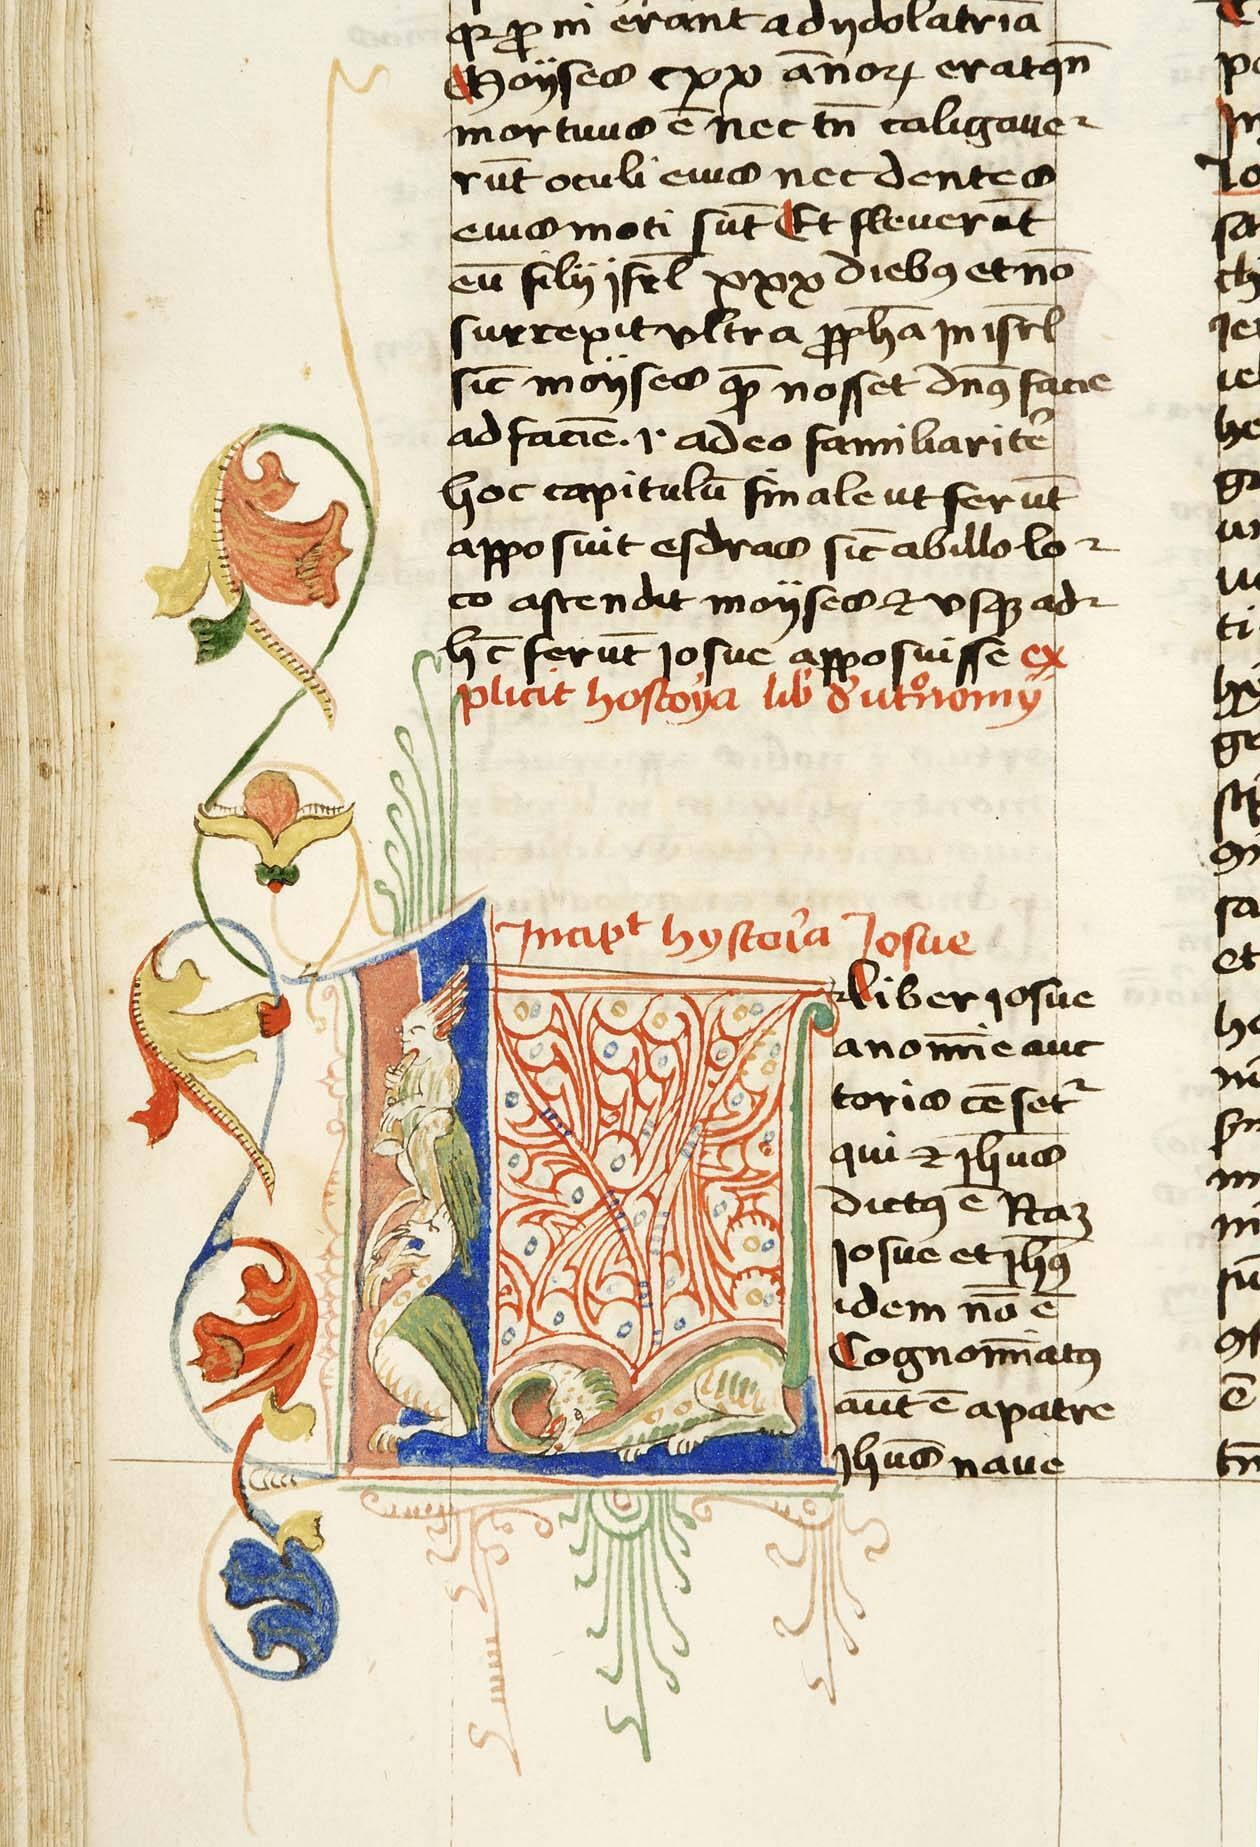 qz ꝓni erant ad ydolatriã
Moÿses cxx ãnoꝝ erat qñ
mortuus ẽ nec tñ caligaue
rũt oculi eius nec dentes
eius moti sũt Et fleuerũt
eũ filij isrl xxx diebꝰ et nõ
surrexit vltra ꝓpha in isrl
sic moÿses qͥ nosset dñs facie
ad faciẽ. ⁊ adeo familiariter
hoc capitulũ finale ut ferũt
apposuit esdras sic ab illo lo
co ascendit moÿses ⁊ vsqꝫ ad
hͨ ferũt Josue apposuisse ex
plicit hystoria lib̾ deut̾onomy
Incipit hystoria Josue
Liber iosue
a noĩe auc
toris cẽsetꝛ
qui ⁊ Jhus
dictꝰ ẽ Naꝫ
Josue et Jhus
idem nõ ẽ
Cognoĩatꝰ
aũt ẽ a patre
Jhus naue